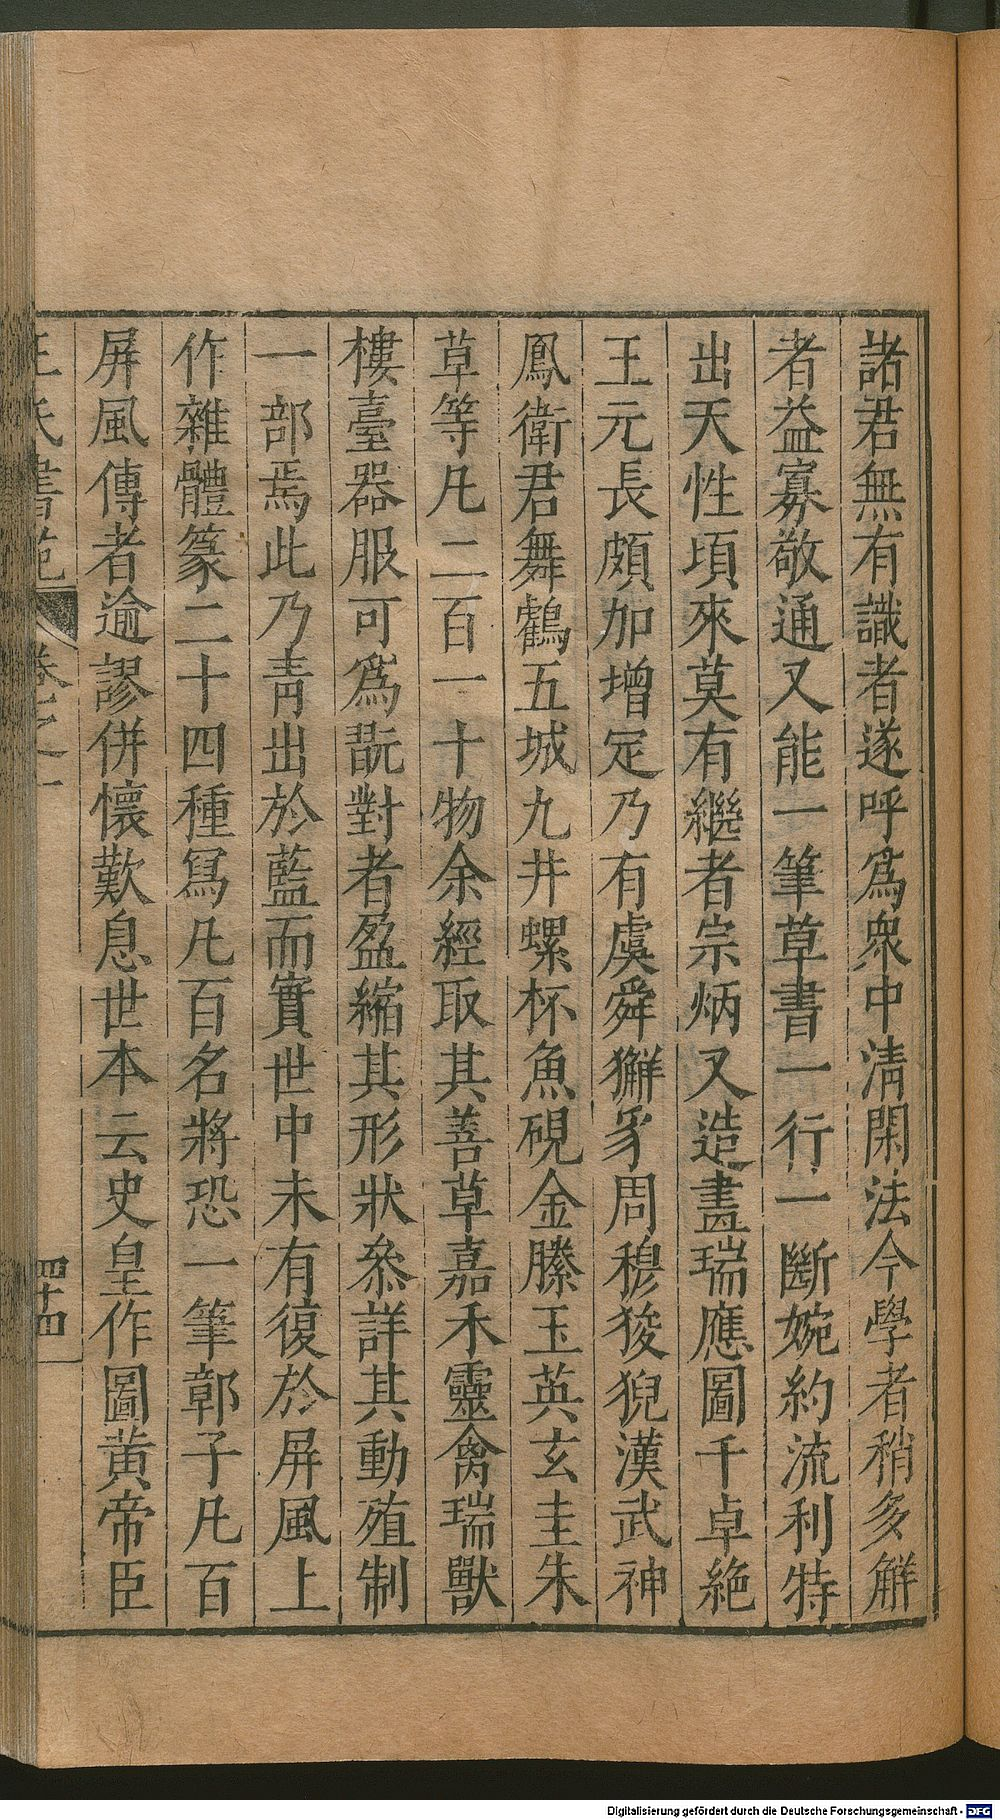 諸君無有識者遂呼爲衆中清閑法今學者稍多解
者益寡敬通又能一筆草書一行一斷婉約流利特
出天性頃來莫有繼者宗炳又造畫瑞應圖千卓絶
王元長頗加增定乃有虞舜獬豸周穆狻猊漢武神
鳳衛君舞鶴五城九井螺杯魚硯金縢玉英玄圭朱
草等凡二百一十物余經取其善草嘉禾靈禽瑞獸
樓臺器服可爲翫對者盈縮其形狀叅詳其動殖制
一部焉此乃靑出於藍而實世中未有復於屏風上
作雜體篆二十四種冩凡百名將恐一筆鄣子凡百
屏風傳者逾謬併懷歎息世本云史皇作圖黃帝臣
王氏書苑 卷之一 四十四
Digitalisierung gefördert durch die Deutsche Forschungsgemeinschaft - DFG